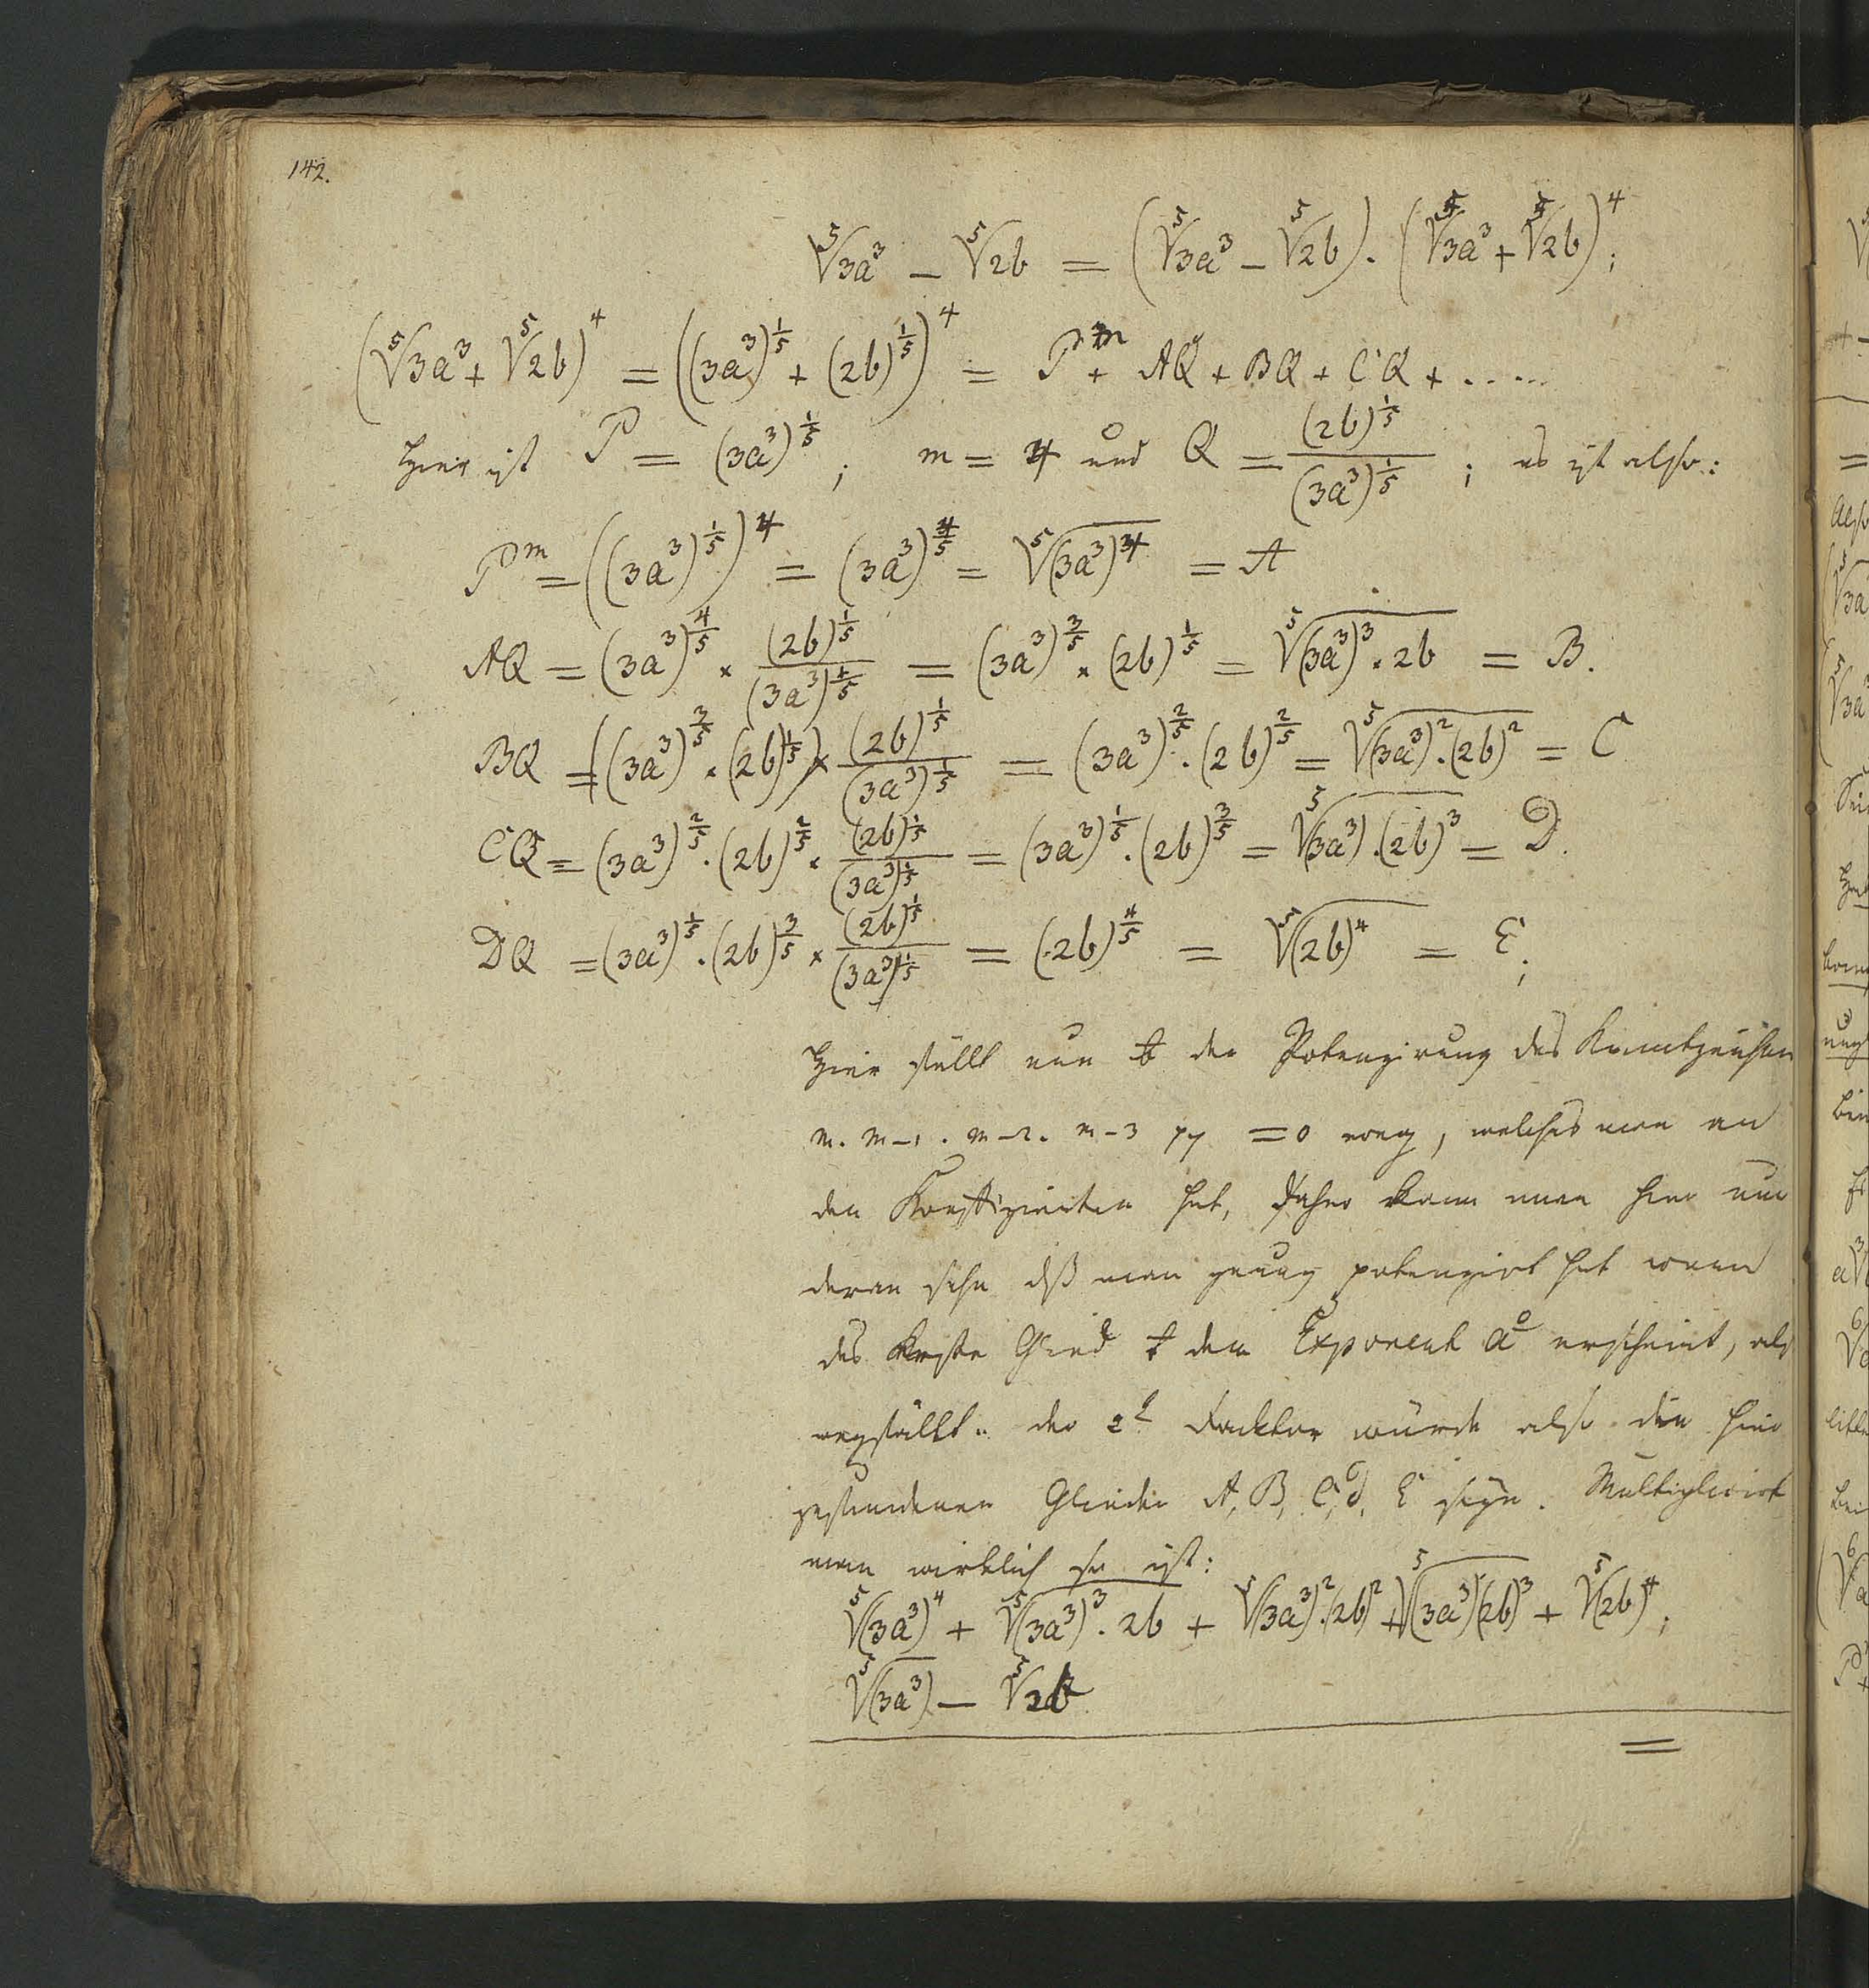 142.
⁵√3a³ − ⁵√2b = (⁵√3a³ − ⁵√2b) . (⁵√3a³ + ⁵√2b)⁴;
(⁵√3a³ + ⁵√2b)⁴ = ((3a³)^{1/5} + (2b)^{1/5})⁴ = P^m + AQ + BQ + CQ + .....
Hier ist P = (3a³)^{1/5}; m = 4 und Q = (2b)^{1/5}/(3a³)^{1/5}; es ist also:
P^m = ((3a³)^{1/5})⁴ = (3a³)^{4/5} = ⁵√(3a³)⁴ = A
AQ = (3a³)^{4/5} × (2b)^{1/5}/(3a³)^{1/5} = (3a³)^{3/5} × (2b)^{1/5} = ⁵√(3a³)³ × 2b = B.
BQ = ((3a³)^{3/5} × (2b)^{1/5}) × (2b)^{1/5}/(3a³)^{1/5} = (3a³)^{2/5} . (2b)^{2/5} = ⁵√(3a³)² . (2b)² = C
CQ = (3a³)^{2/5} . (2b)^{2/5} × (2b)^{1/5}/(3a³)^{1/5} = (3a³)^{1/5} . (2b)^{3/5} = ⁵√(3a³) . (2b)³ = D.
DQ = (3a³)^{1/5} . (2b)^{3/5} × (2b)^{1/5}/(3a³)^{1/5} = (2b)^{4/5} = ⁵√(2b)⁴ = E;
Hier fällt nun der Potenzirung das Kenntzeichen
m. m−1. m−2. m−3 = 0 weg, welches man an
den Koeffizienten hat, daher kann man hier nur
daran sehn dß man genug potenzirt hat wenn
das erste Glied dem Exponent a⁰ erscheint, als
wegfällt. der 2t Facktor würde also die hier
gefundenen Glieder A, B, C, D, E seyn. Multiplicirt
man wirklich so ist:
⁵√(3a³)⁴ + ⁵√(3a³)³ . 2b + ⁵√(3a³)² . (2b)² + ⁵√(3a³)(2b)³ + ⁵√(2b)⁴;
⁵√(3a³) − ⁵√2b
=